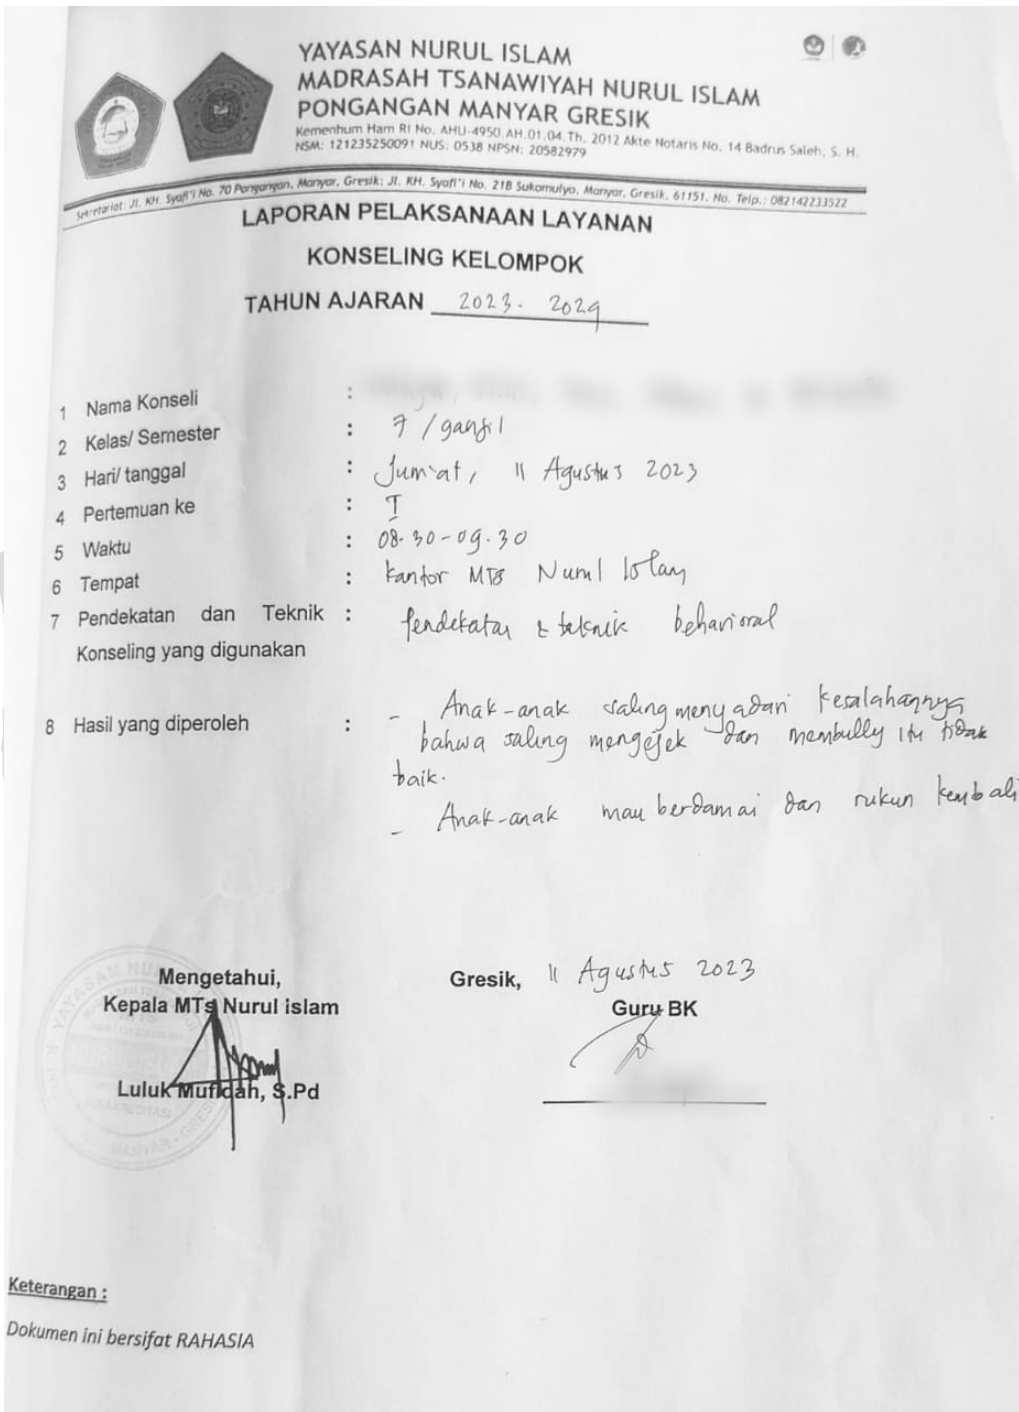 YAYASAN NURUL ISLAM
MADRASAH TSANAWIYAH NURUL ISLAM
PONGANGAN MANYAR GRESIK
Kemenhum Ham RI No. AHU-4950.AH.01.04.Th. 2012 Akte Notaris No. 14 Badrus Saleh, S. H.
NSM: 121235250091 NUS: 0538 NPSN: 20582979
Sekretariat: Jl. KH. Syafi'i No. 70 Pongangan, Manyar, Gresik; Jl. KH. Syafi'i No. 21B Sukomulyo, Manyar, Gresik, 61151. No. Telp.: 082142233522
LAPORAN PELAKSANAAN LAYANAN
KONSELING KELOMPOK
TAHUN AJARAN 2023 - 2024
1 Nama Konseli :
2 Kelas/ Semester : 7 / ganjil
3 Hari/ tanggal : Jum'at, 11 Agustus 2023
4 Pertemuan ke : I
5 Waktu : 08.30-09.30
6 Tempat : kantor MTs Nurul Islam
7 Pendekatan dan Teknik : Pendekatan & teknik behavioral
Konseling yang digunakan
8 Hasil yang diperoleh : - Anak-anak saling menyadari kesalahannya
bahwa saling mengejek dan membully itu tidak
baik.
- Anak-anak mau berdamai dan rukun kembali
Mengetahui,
Gresik, 11 Agustus 2023
Kepala MTs Nurul islam
Guru BK
Luluk Mufidah, S.Pd
Keterangan :
Dokumen ini bersifat RAHASIA